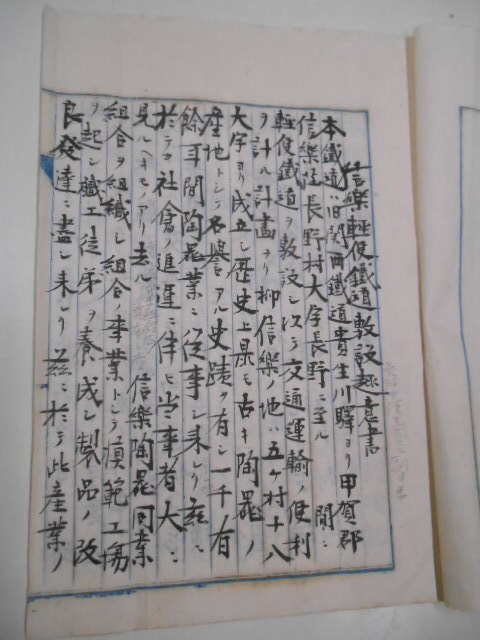 信樂輕便鐵道敷設趣意書
本鐵道ハ旧関西鐵道貴生川驛ヨリ甲賀郡
信樂庄長野村大字長野ニ至ル 間ニ
輕便鐵道ヲ敷設シ以テ交通運輸ノ便利
ヲ計ル計画ナリ抑信樂ノ地ハ五ケ村十八
大字ヨリ成立シ歴史上最モ古キ陶器ノ
産地トシテ名譽アル史蹟ヲ有シ一千有
餘年間陶器業ニ従事シ来レリ茲ニ
於テコ社會ノ進運ニ伴ヒ当事者大ニ
見ルベキモノアリ去ル 信樂陶器同業
組合ヲ組織シ組合ノ事業トシテ模範工場
ヲ起シ職工徒弟ヲ養成シ製品ノ改
良發達ニ盡シ来レリ茲ニ於テ此産業ノ